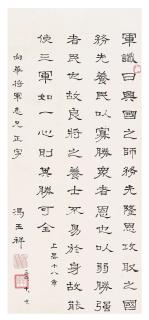 軍讖曰興國之師務先隆恩攻取之國
務先養民以寡勝衆者恩也以弱勝强
者民也故良將之養士不易於身故能
使三軍如一心則其勝可全
上略十八章
向華将軍老兄正字
馮玉祥